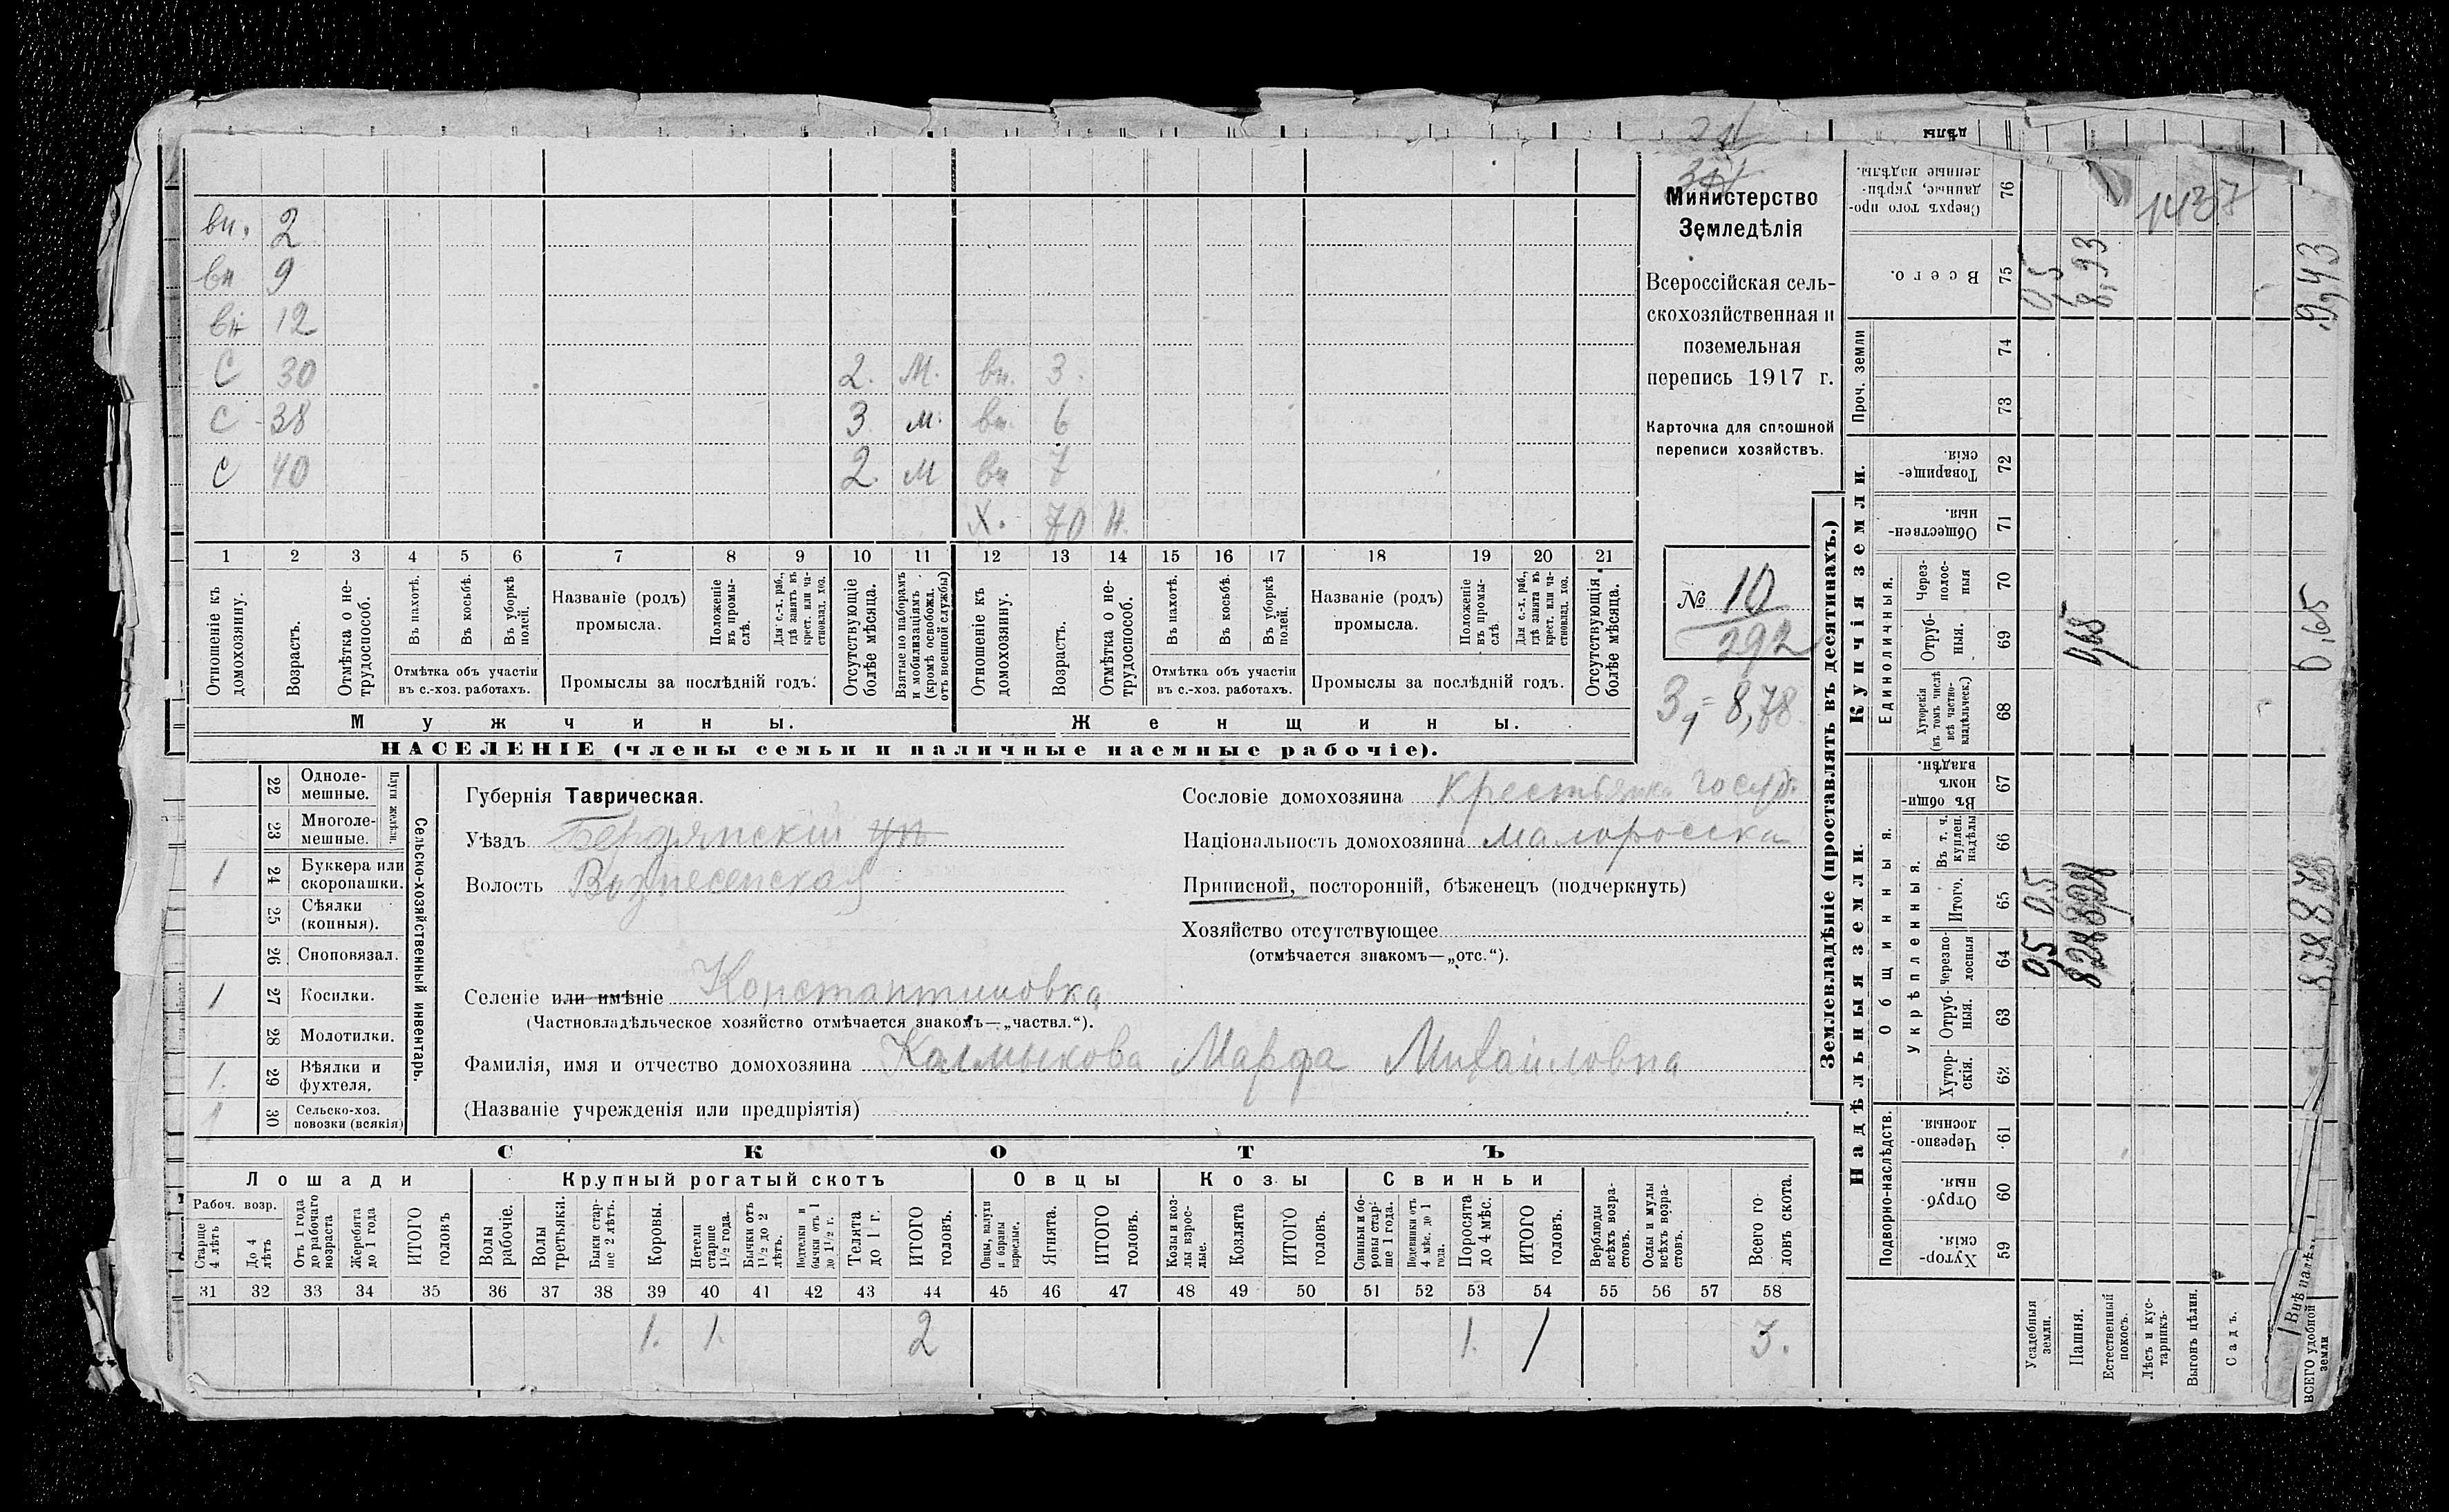 вн. 2
вн 9
вн 12
С 30 2. М. вн. 3.
С 38 3 м. вн. 6
С 40 2. М вн 7
Х. 70 Н.
1 2 3 4 5 6 7 8 9 10 11 12 13 14 15 16 17 18 19 20 21
Отношеніе къ домохозяину.
Возрастъ.
Отмѣтка о нетрудоспособ.
Въ пахотѣ.
Въ косьбѣ.
Въ уборкѣ полей.
Отмѣтка объ участіи
въ с.-хоз. работахъ.
Названіе (родъ)
промысла.
Положеніе въ промыслѣ.
Для с.-х. раб., гдѣ занятъ въ крест. или частновлад. хоз.
Промыслы за послѣдній годъ.
Отсутствующіе болѣе мѣсяца.
Взятые по наборамъ и мобилизаціямъ (кромѣ освобожд. отъ военной службы)
Отношеніе къ домохозяину.
Возрастъ.
Отмѣтка о нетрудоспособ.
Въ пахотѣ.
Въ косьбѣ.
Въ уборкѣ полей.
Отмѣтка объ участіи
въ с.-хоз. работахъ.
Названіе (родъ)
промысла.
Положеніе въ промыслѣ
Для с.-х. раб., гдѣ занята въ крест. или частновлад. хоз.
Промыслы за послѣдній годъ.
Отсутствующія болѣе мѣсяца.
Мужчины.
Женщины.
НАСЕЛЕНІЕ (члены семьи и наличные наемные рабочіе).
Министерство
Земледѣлія
Всероссійская сель-
скохозяйственная и
поземельная
перепись 1917 г.
Карточка для сплошной
переписи хозяйствъ.
№ 10
292
8,78
22 Одноле-
мешные.
23 Многоле-
мешные.
Плуги желѣзн.
1 24 Буккера или
скоропашки.
25 Сѣялки
(конныя).
26 Сноповязал.
1 27 Косилки.
28 Молотилки.
1. 29 Вѣялки и
фухтеля.
1 30 Сельско-хоз.
повозки (всякія)
Сельско-хозяйственный инвентарь.
Губернія Таврическая.
Уѣздъ Бердянскій
Волость Вознесенская
Сословіе домохозяина Крестьянка госуд.
Національность домохозяина малоросска
Приписной, посторонній, бѣженецъ (подчеркнуть)
Хозяйство отсутствующее
(отмѣчается знакомъ—„отс.“).
Селеніе или имѣніе Константиновка
(Частновладѣльческое хозяйство отмѣчается знакомъ—„частвл.“).
Фамилія, имя и отчество домохозяина Калмыкова Марфа Михаиловна
(Названіе учрежденія или предпріятія)
СКОТЪ
Лошади
Крупный рогатый скотъ
Овцы
Козы
Свиньи
Рабоч. возр.
Старше 4 лѣтъ
До 4 лѣтъ
Отъ 1 года до рабочаго возраста
Жеребята до 1 года
ИТОГО головъ
Волы рабочіе.
Волы третьяки.
Быки старше 2 лѣтъ.
Коровы.
Нетели старше 1½ года.
Бычки отъ 1½ до 2 лѣтъ.
Подтелки и бычки отъ 1 до 1½ г.
Телята до 1 г.
ИТОГО головъ.
Овцы, валухи и бараны взрослые.
Ягнята.
ИТОГО головъ.
Козы и козлы взрослые.
Козлята
ИТОГО головъ.
Свиньи и боровы старше 1 года.
Подсвинки отъ 4 мѣс. до 1 года.
Поросята до 4 мѣс.
ИТОГО головъ.
Верблюды всѣхъ возрастовъ.
Ослы и мулы всѣхъ возрастовъ.
Всего головъ скота.
31 32 33 34 35 36 37 38 39 40 41 42 43 44 45 46 47 48 49 50 51 52 53 54 55 56 57 58
1. 1. 2 1. 1 3.
Землевладѣніе (проставлять въ десятинахъ.)
Купчія земли.
Надѣльныя земли.
Сверхъ того проданные, укрѣпленные надѣлы. 76
1437
Всего. 75 0,5 8,93 9,43
Проч. земли 74 73
Товарищескія. 72
Общественныя. 71
Единоличныя.
Черезполосныя 70
Отрубныя. 69 0,65 0,65
Хуторскія (въ томъ числѣ всѣ частновладѣльческ.) 68
Общинныя.
Въ общинномъ владѣн. 67
Укрѣпленныя.
Въ т. ч. куплен. надѣлы 66
Итого. 65 0,5 8,28 8,78
Черезполосныя 64 0,5 8,28 8,78
Отрубныя. 63
Хуторскія. 62
Подворно-наслѣдств.
Черезполосныя. 61
Отрубныя. 60
Хуторскія. 59
Усадебныя земли.
Пашня.
Естественный покосъ.
Лѣсъ и кустарникъ.
Выгонъ цѣлин.
Садъ.
ВСЕГО удобной земли